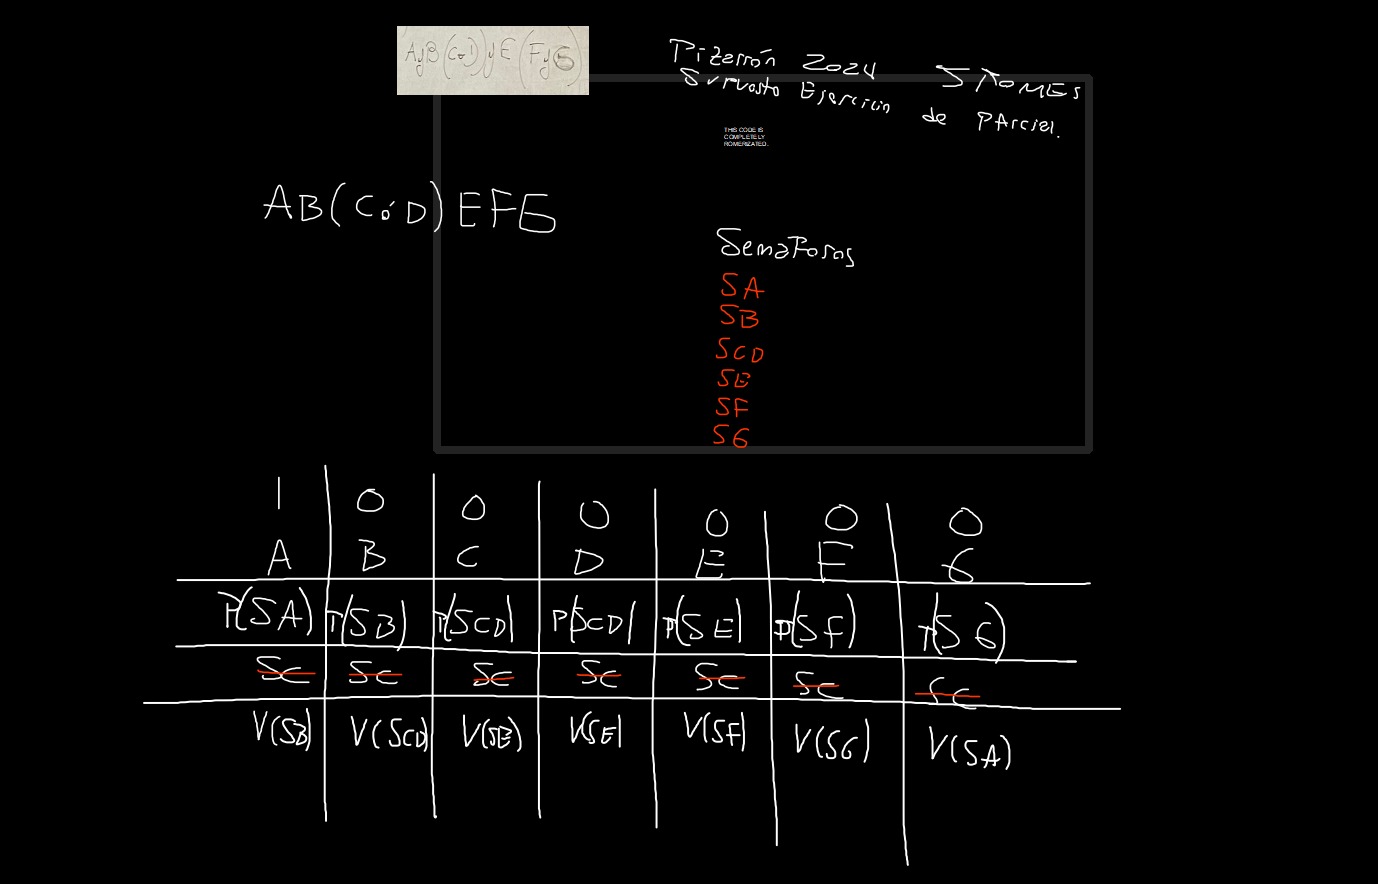 AyB(CoD)yE(FyG)
Pizarrón 2024 STOMEs
Supuesto Ejercicio de PArcial.
THIS CODE IS
COMPLETELY
ROMERIZATED.
AB(CóD)EFG
Semaforos
SA
SB
SCD
SE
SF
SG
1 0 0 0 0 0 0
A B C D E F G
P(SA) P(SB) P(SCD) P(SCD) P(SE) P(SF) P(SG)
SC SC SC SC SC SC SC
V(SB) V(SCD) V(SE) V(SE) V(SF) V(SG) V(SA)